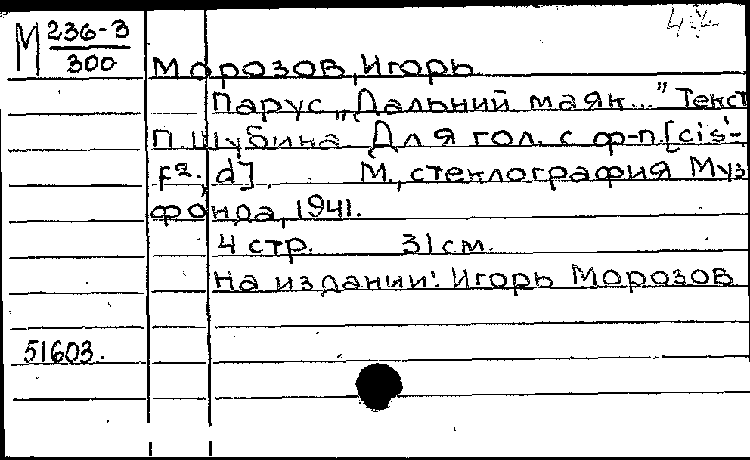 М 236-3
300
Морозов, Игорь
Парус „Дальний маяк..." Текст
П. Шубина. Для гол. с ф-п. [cis'-
F²; d]. М., стеклография Муз
фонда, 1941.
4 стр. 31 см.
На издании: Игорь Морозов
51603.